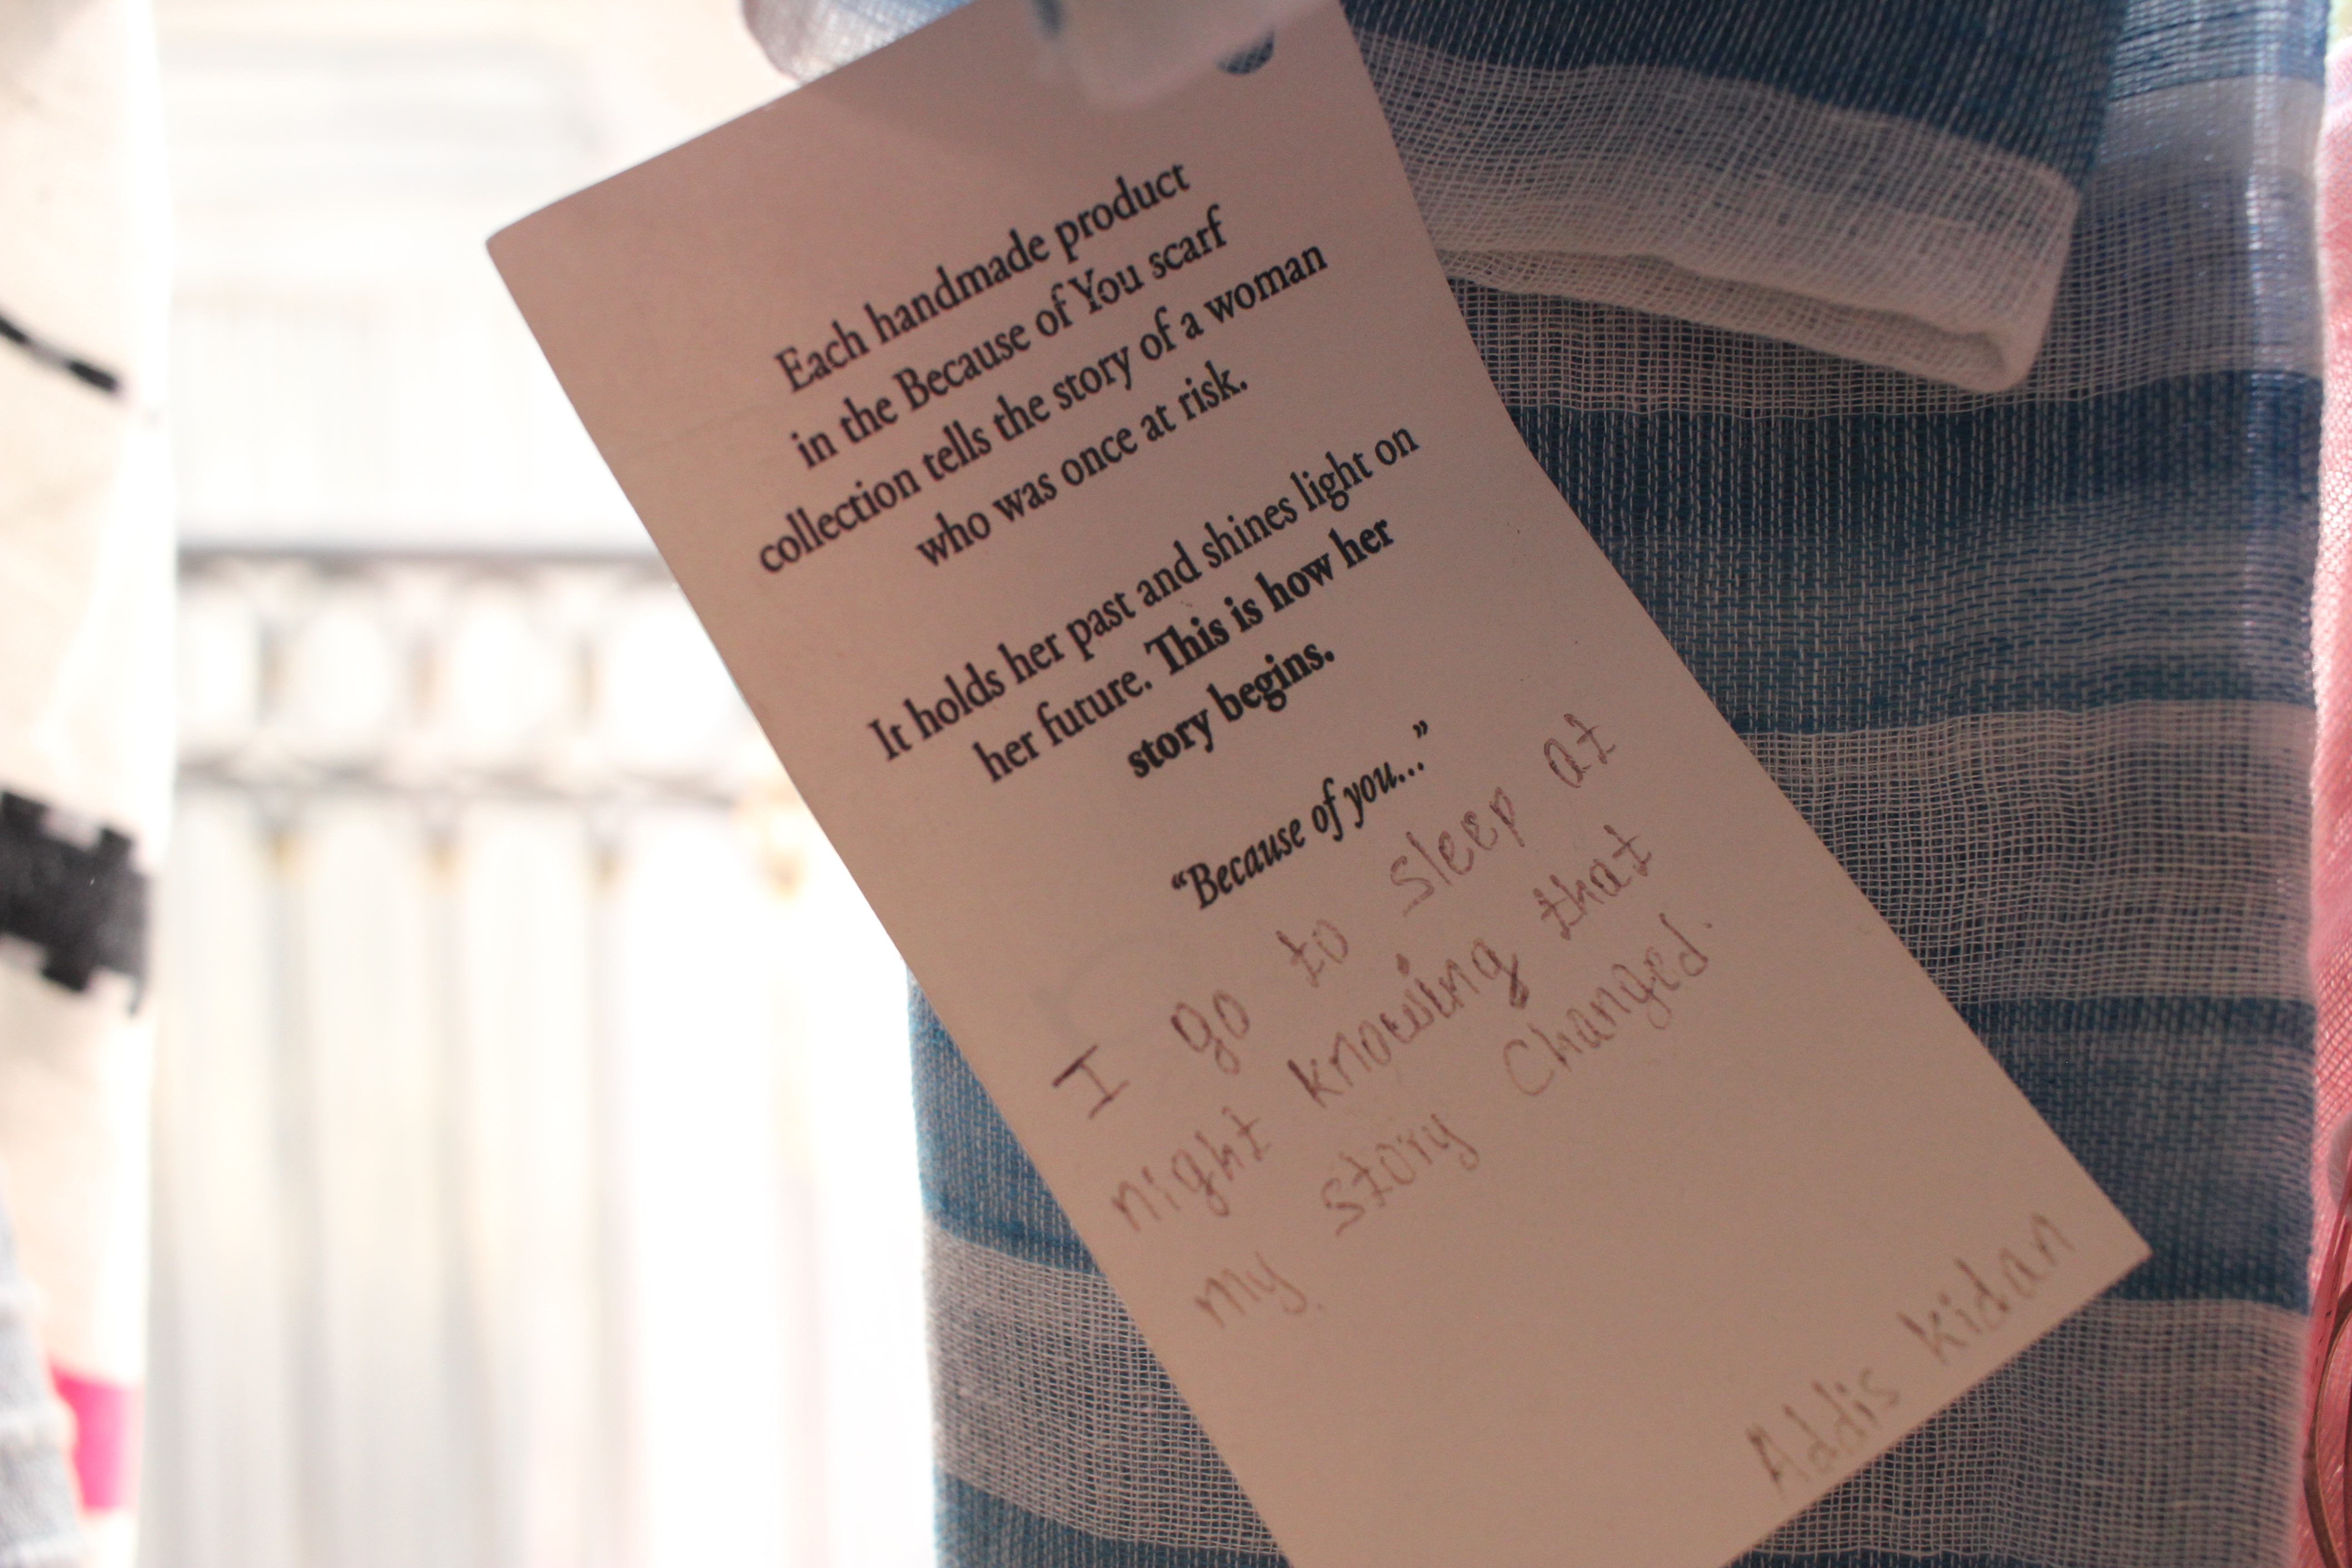 Each handmade product
in the Because of You scarf
collection tells the story of a woman
who was once at risk.
It holds her past and shines light on
her future. This is how her
story begins.
“Because of you...”
I go to sleep at
night knowing that
my story changed.
Addis kidan